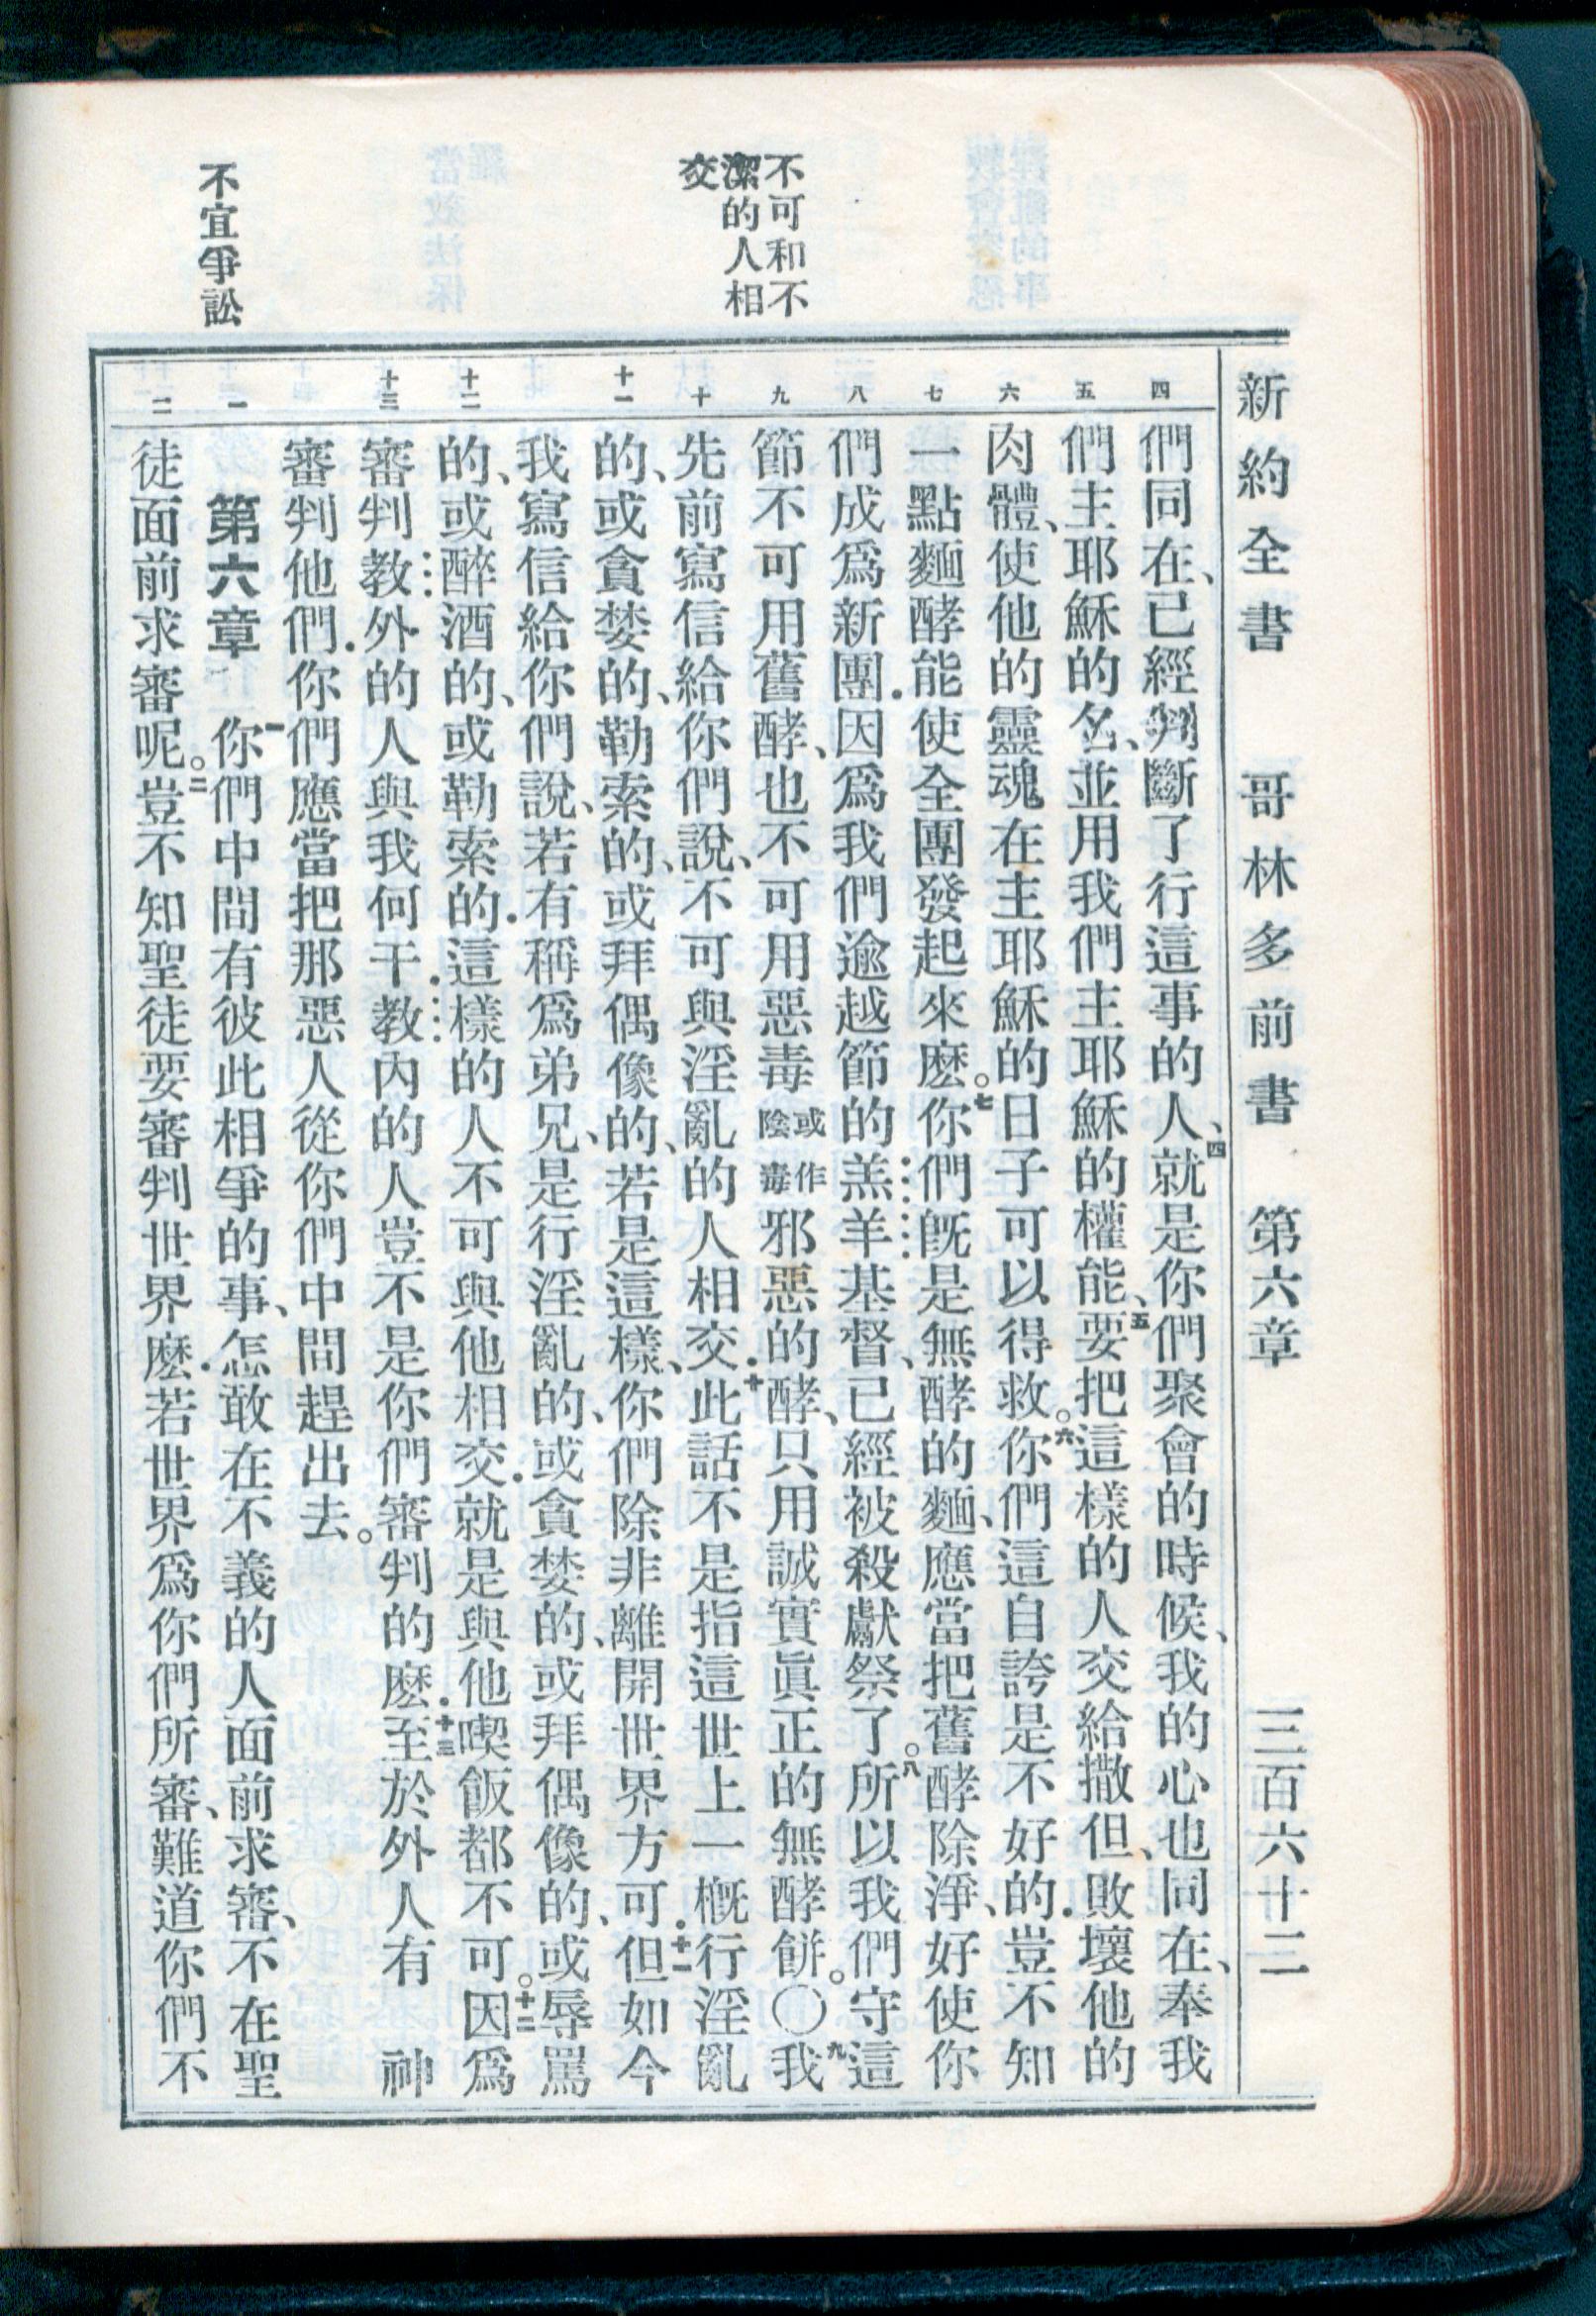 新約全書 哥林多前書 第六章 三百六十二
不可和不
潔的人相
交
不宜爭訟
四 五 六 七 八 九 十 十一 十二 十三 一 二
們同在、已經判斷了行這事的人、四就是你們聚會的時候、我的心也同在、奉我
們主耶穌的名、並用我們主耶穌的權能、五要把這樣的人交給撒但、敗壞他的
肉體、使他的靈魂在主耶穌的日子可以得救。六你們這自誇是不好的.豈不知
一點麵酵能使全團發起來麽。七你們旣是無酵的麵、應當把舊酵除淨、好使你
們成爲新團.因爲我們逾越節的羔羊基督、已經被殺獻祭了。八所以我們守這
節不可用舊酵、也不可用惡毒或作陰毒邪惡的酵、只用誠實眞正的無酵餅。〇九我
先前寫信給你們說、不可與淫亂的人相交.十此話不是指這世上一槪行淫亂
的、或貪婪的、勒索的、或拜偶像的、若是這樣、你們除非離開世界方可.十一但如今
我寫信給你們說、若有稱爲弟兄、是行淫亂的、或貪婪的、或拜偶像的、或辱罵
的、或醉酒的、或勒索的.這樣的人不可與他相交.就是與他喫飯都不可。十二因爲
審判教外的人與我何干.教內的人豈不是你們審判的麽.十三至於外人有 神
審判他們.你們應當把那惡人從你們中間趕出去。
第六章 一你們中間有彼此相爭的事、怎敢在不義的人面前求審、不在聖
徒面前求審呢。二豈不知聖徒要審判世界麽.若世界爲你們所審、難道你們不